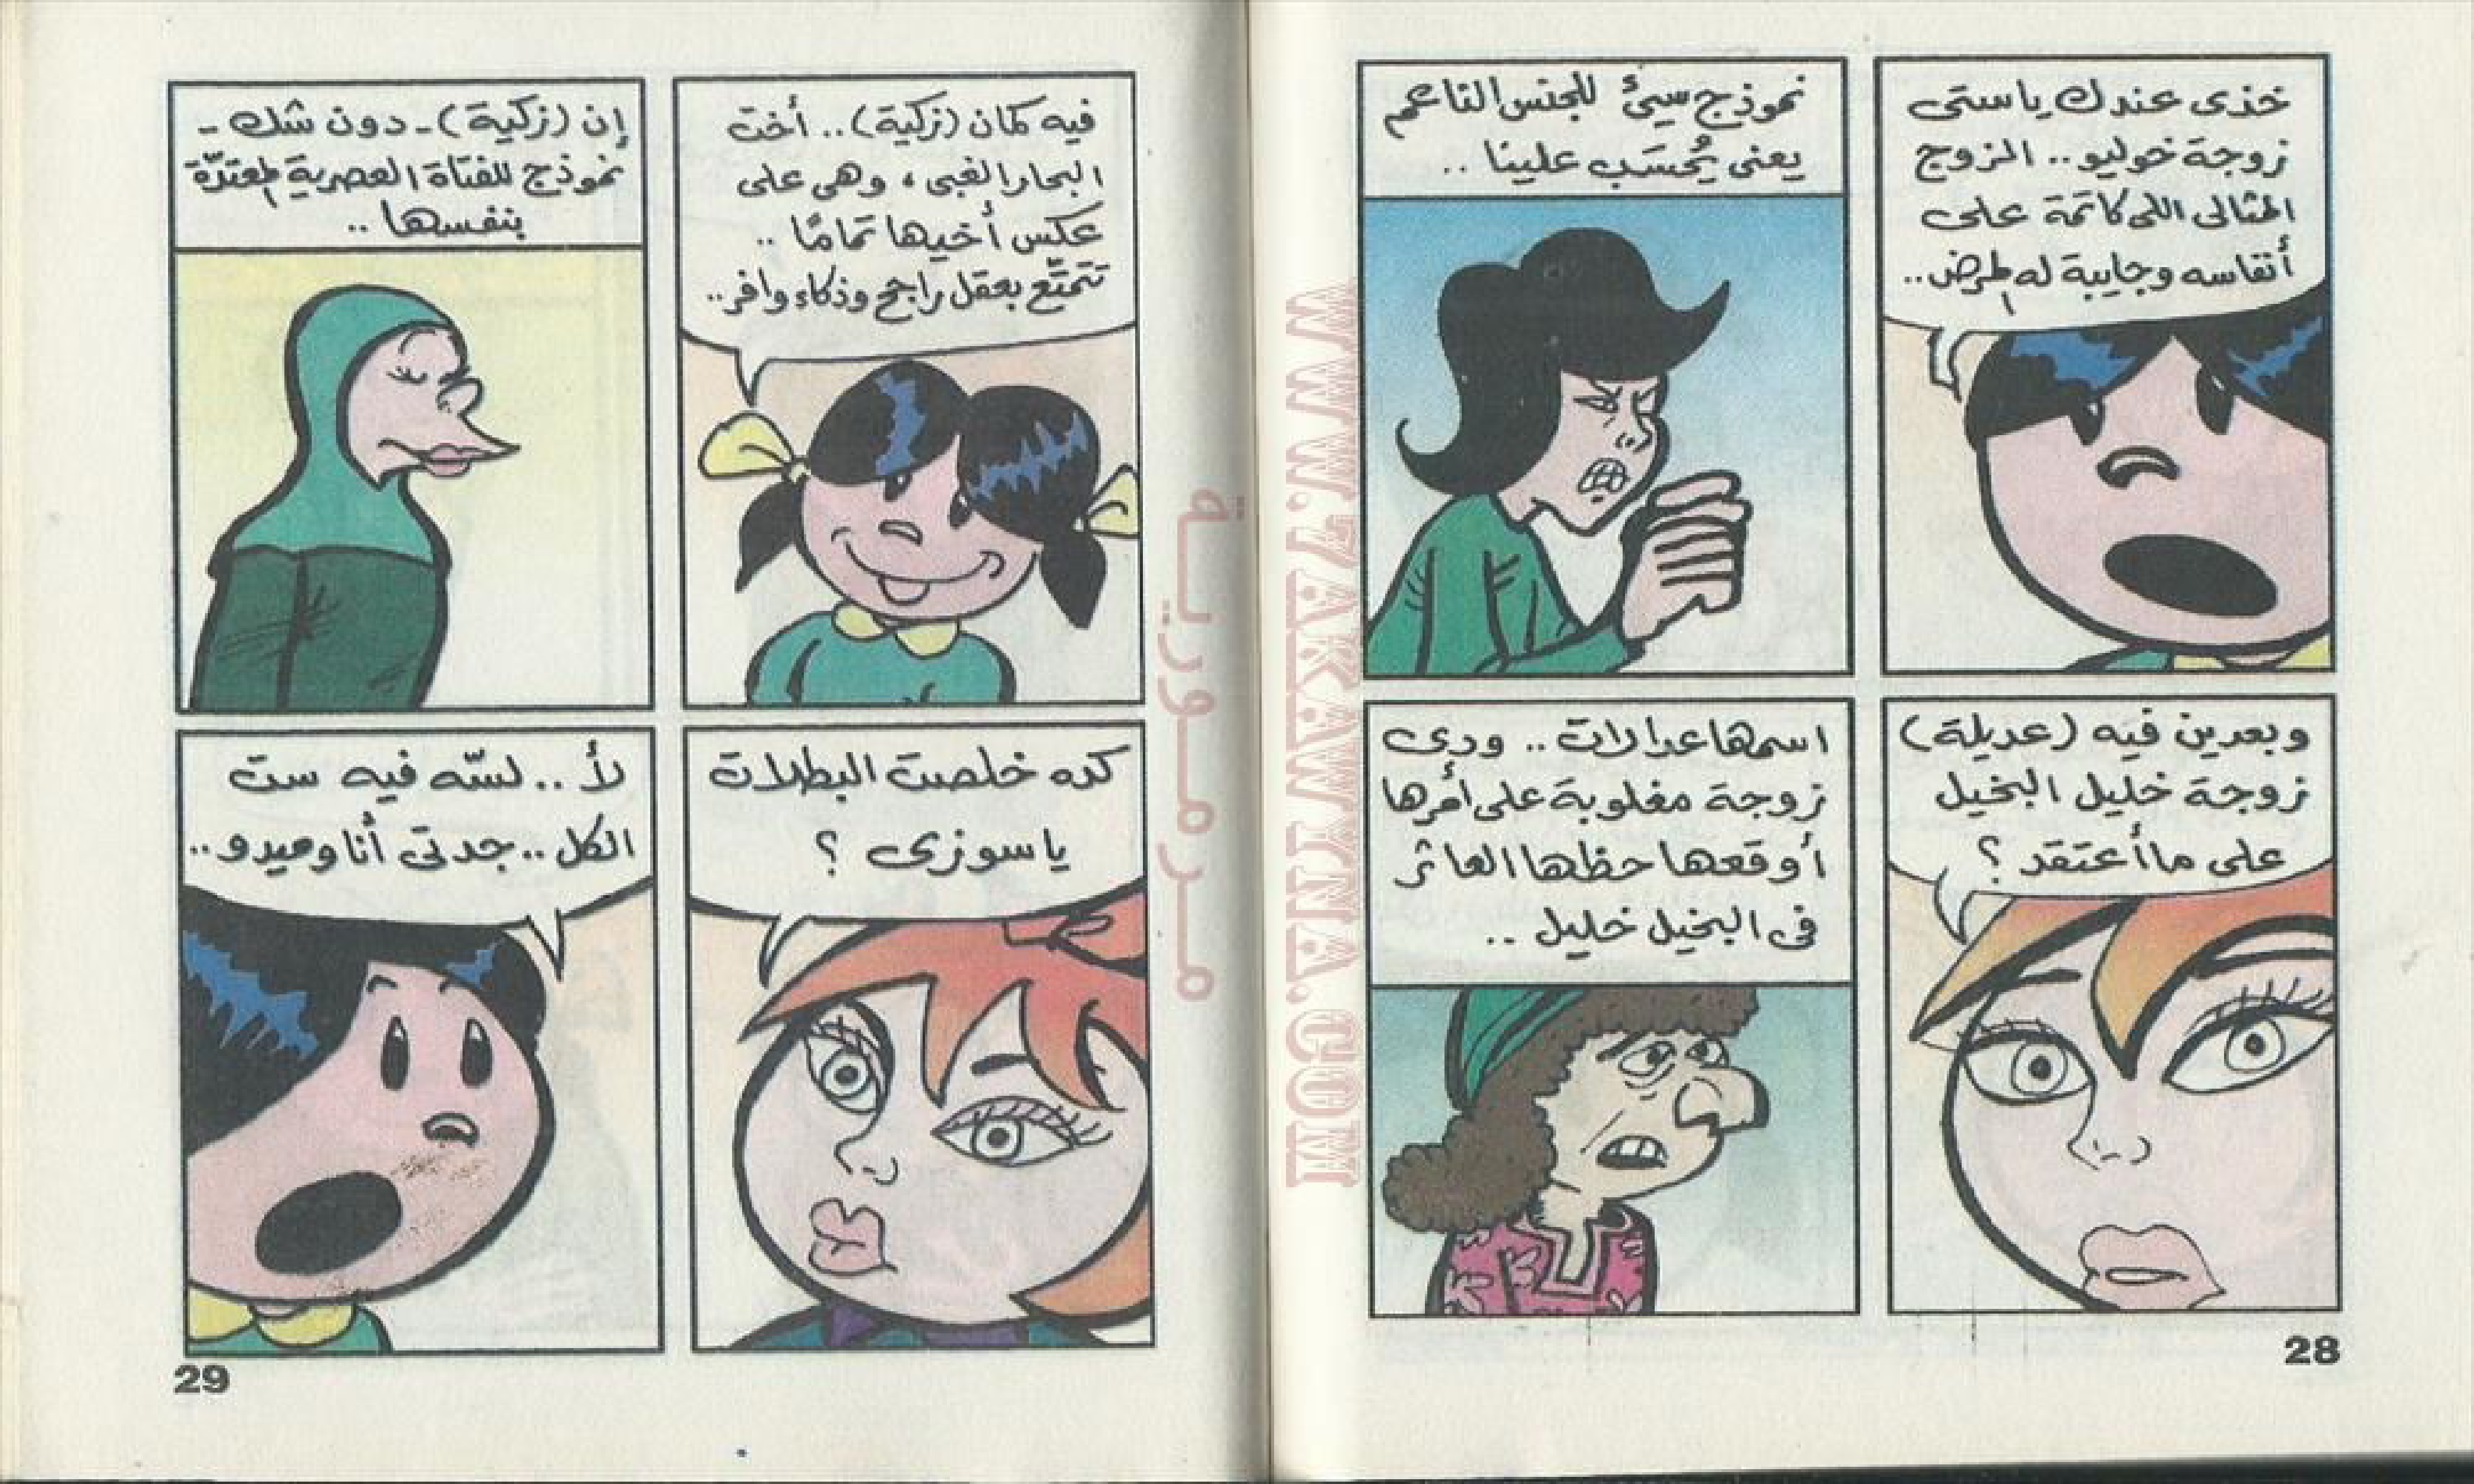 خذى عندك ياستى
زوجة خوليو.. الزوج
المثالى اللى كاتمة على
أنفاسه وجايبة له المرض..
نموذج سيئ للجنس الناعم
يعنى يُحسَب علينا ..
وبعدين فيه (عديلة)
زوجة خليل البخيل
على ما أعتقد ؟
زوجة مغلوبة على أمرها
أوقعها حظها العاثر
فى البخيل خليل ..
28
فيه كمان (زكية).. أخت
البحار الغبى ، وهى على
عكس أخيها تمامًا ..
تتمتّع بعقل راجح وذكاء وافر..
إن (زكية) - دون شك -
نموذج للفتاة العصرية المعتدّة
بنفسها ..
كده خلصت البطلات
ياسوزى ؟
لأ .. لسّه فيه ست
الكل .. جدتى أنا وميدو ..
29
مرمورية
WWW.ARAWENA.COM